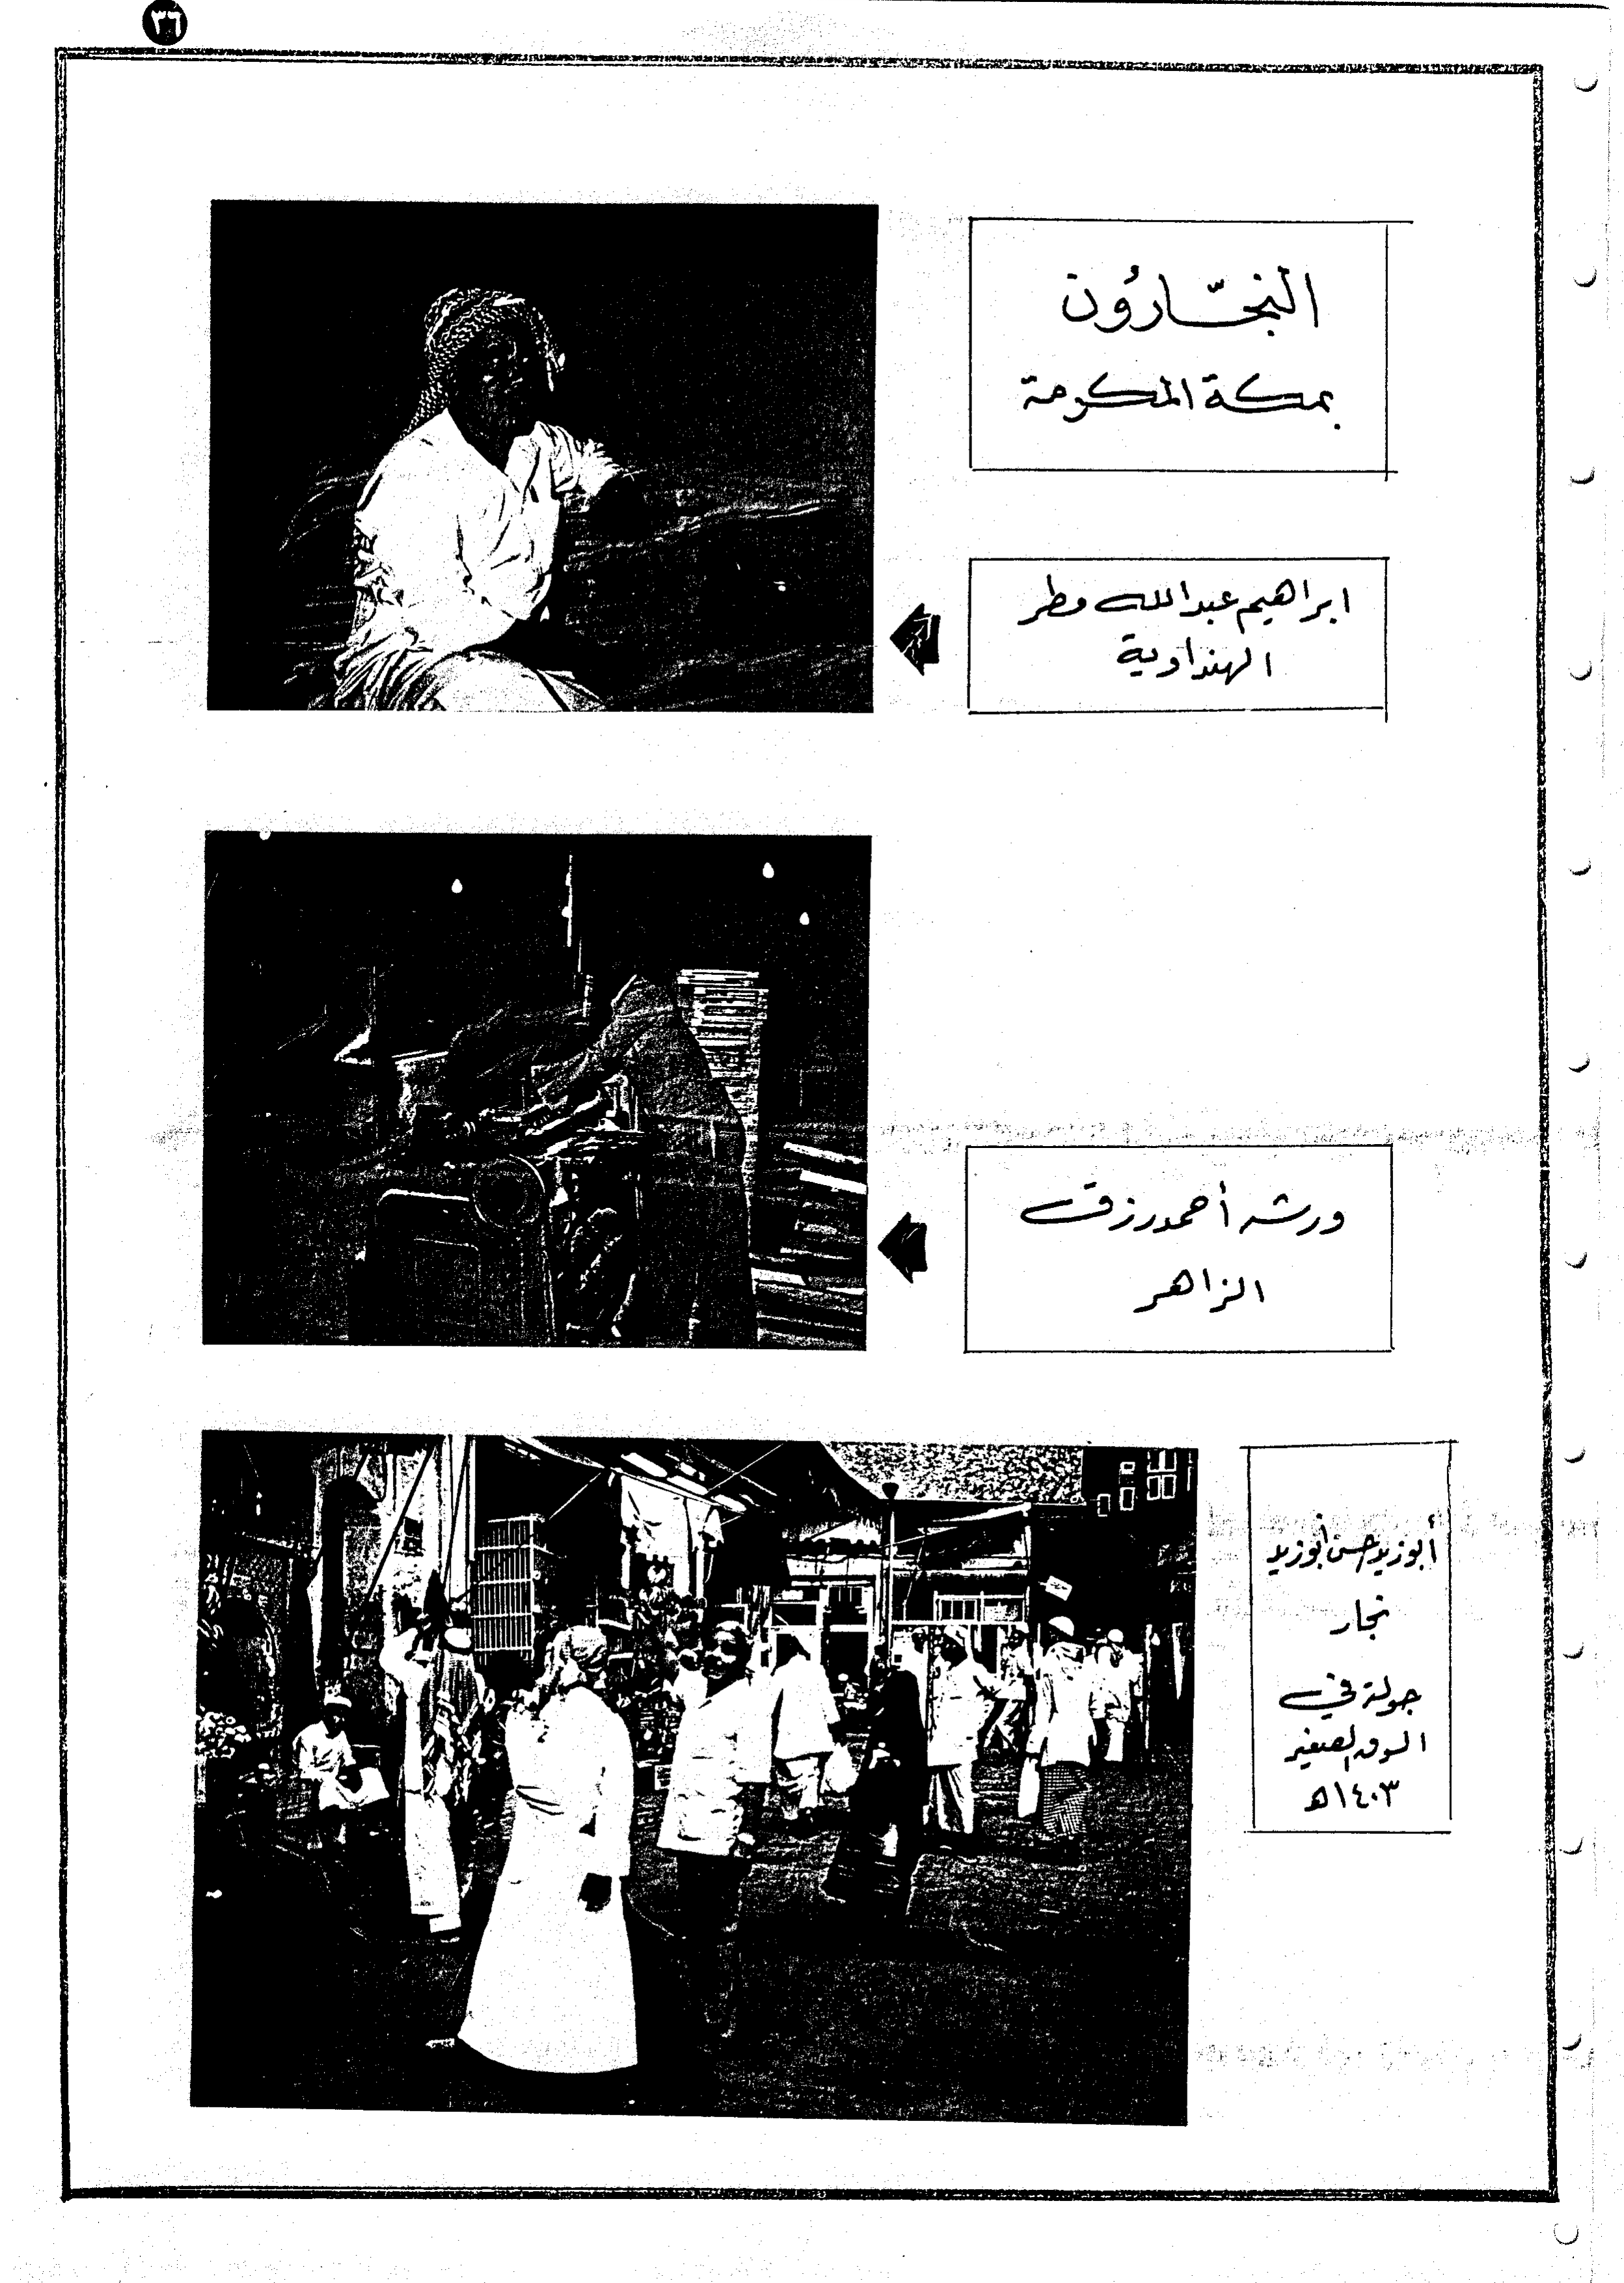 ٣٦
النجّارُون
بمكة المكرمة
ابراهيم عبدالله مطر
الهنداوية
ورشه أحمد رزق
الزاهر
أبوزيد حسن أبوزيد
نجار
جولة في
السوق الصغير
١٤٠٣ھ